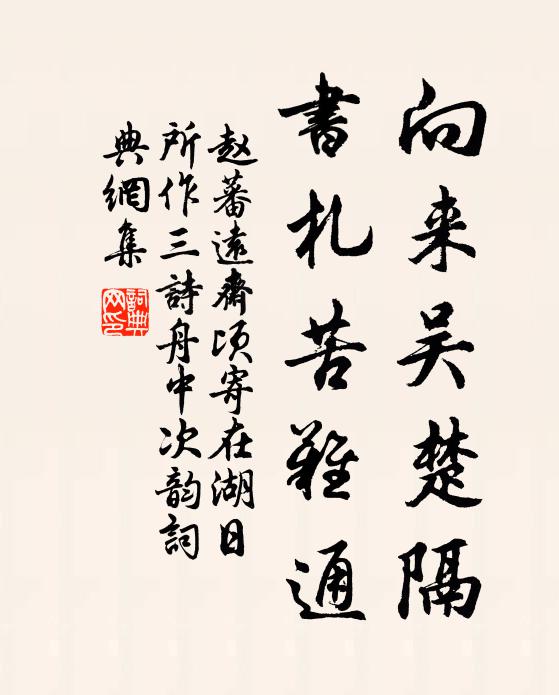 向来吴楚隔
書札苦難通
赵蕃遠齋頃寄在湖日
所作三詩舟中次韵詞
典網集
詞典网印